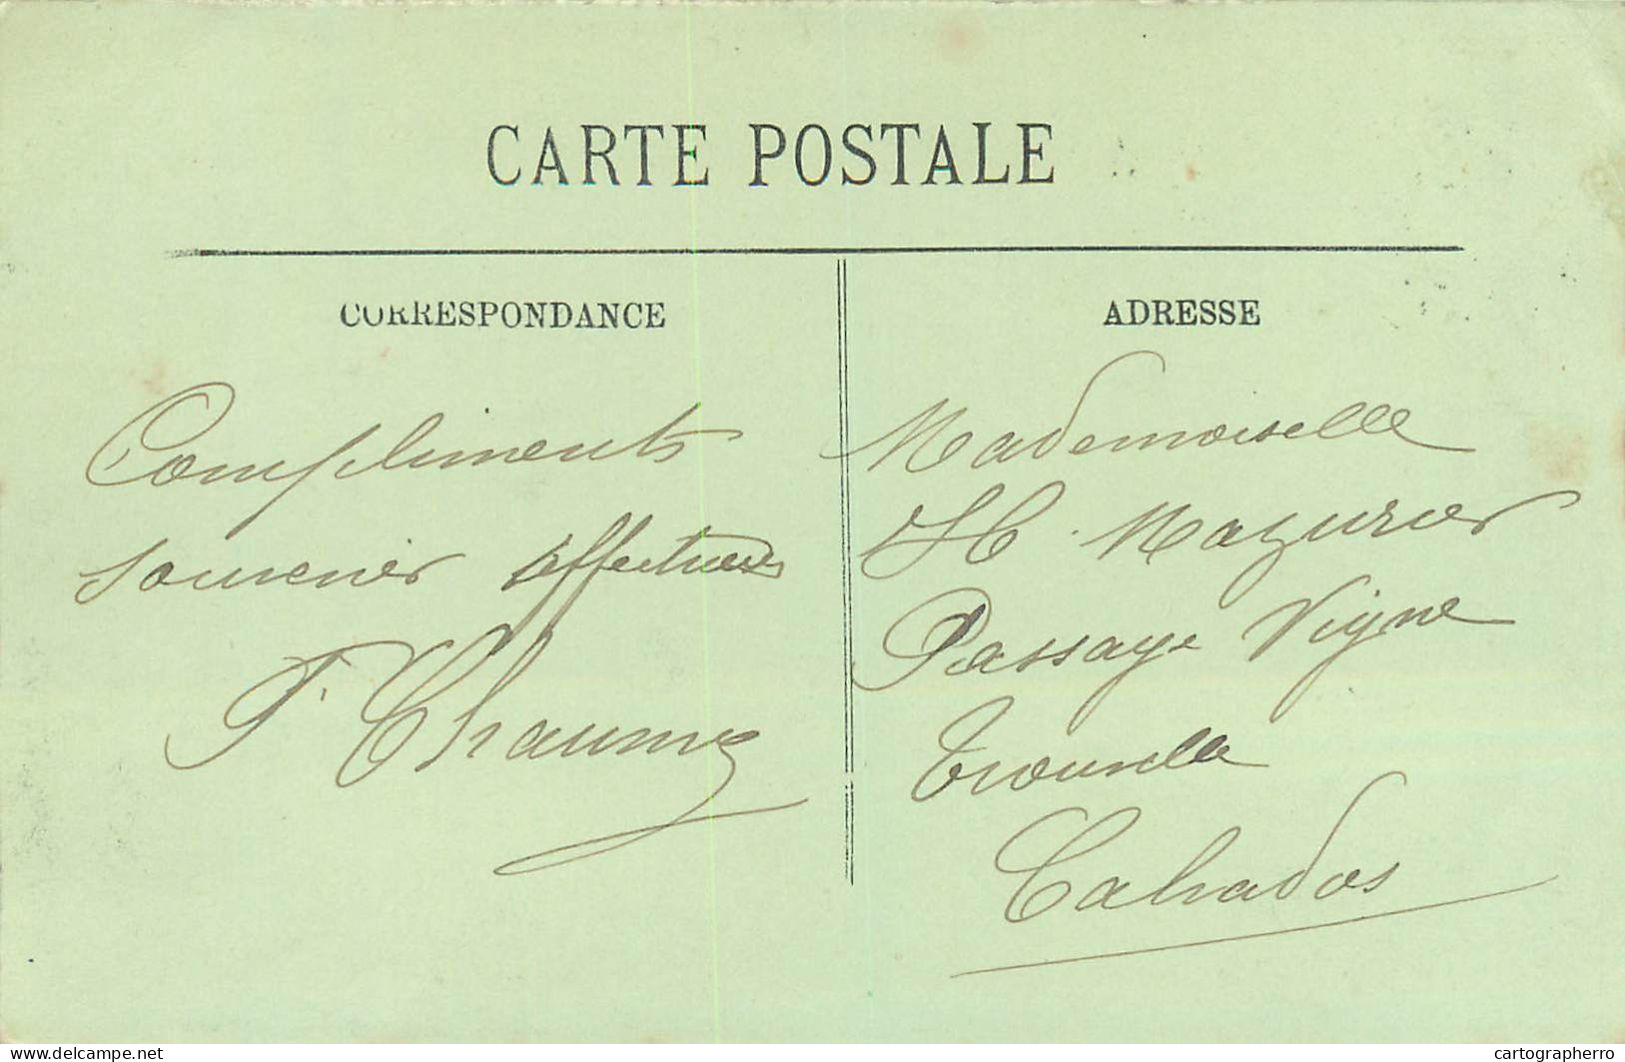 CARTE POSTALE
CORRESPONDANCE
Compliments
souvenir affectueux
F. Chaumz
ADRESSE
Mademoiselle
H. Mazurier
Passage Vigne
Trouville
Calvados
Delcampe.net
cartographerro